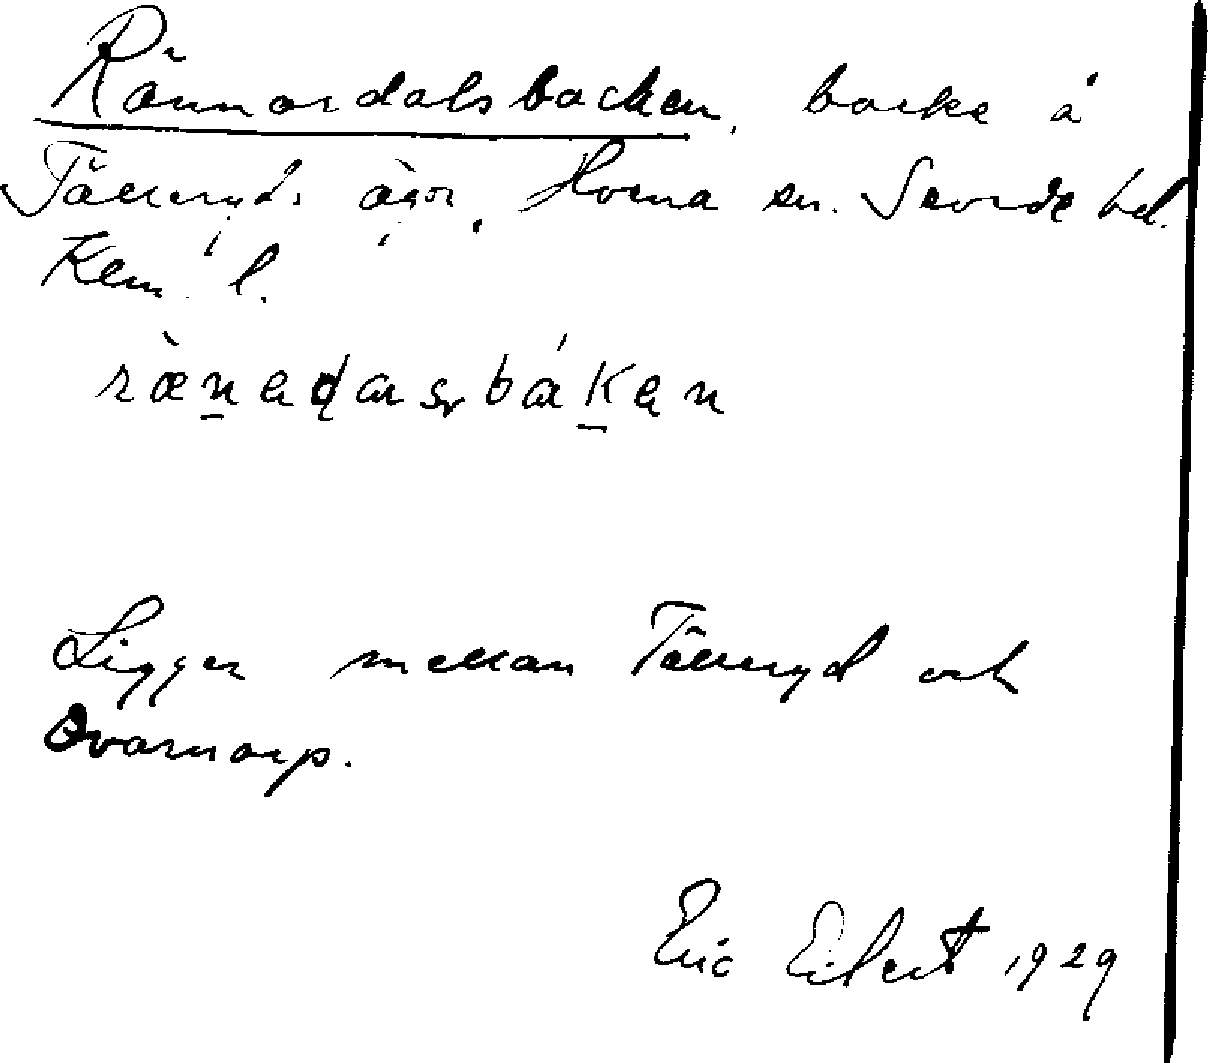 Rännardalsbacken, backe å
Tälleryds ägor, Horna sn. Sevede hd.
Kem l.
ràe̠nadasbákan
Ligger mellan Tälleryd och
Qvarnarp.
Eric Eilert 1929